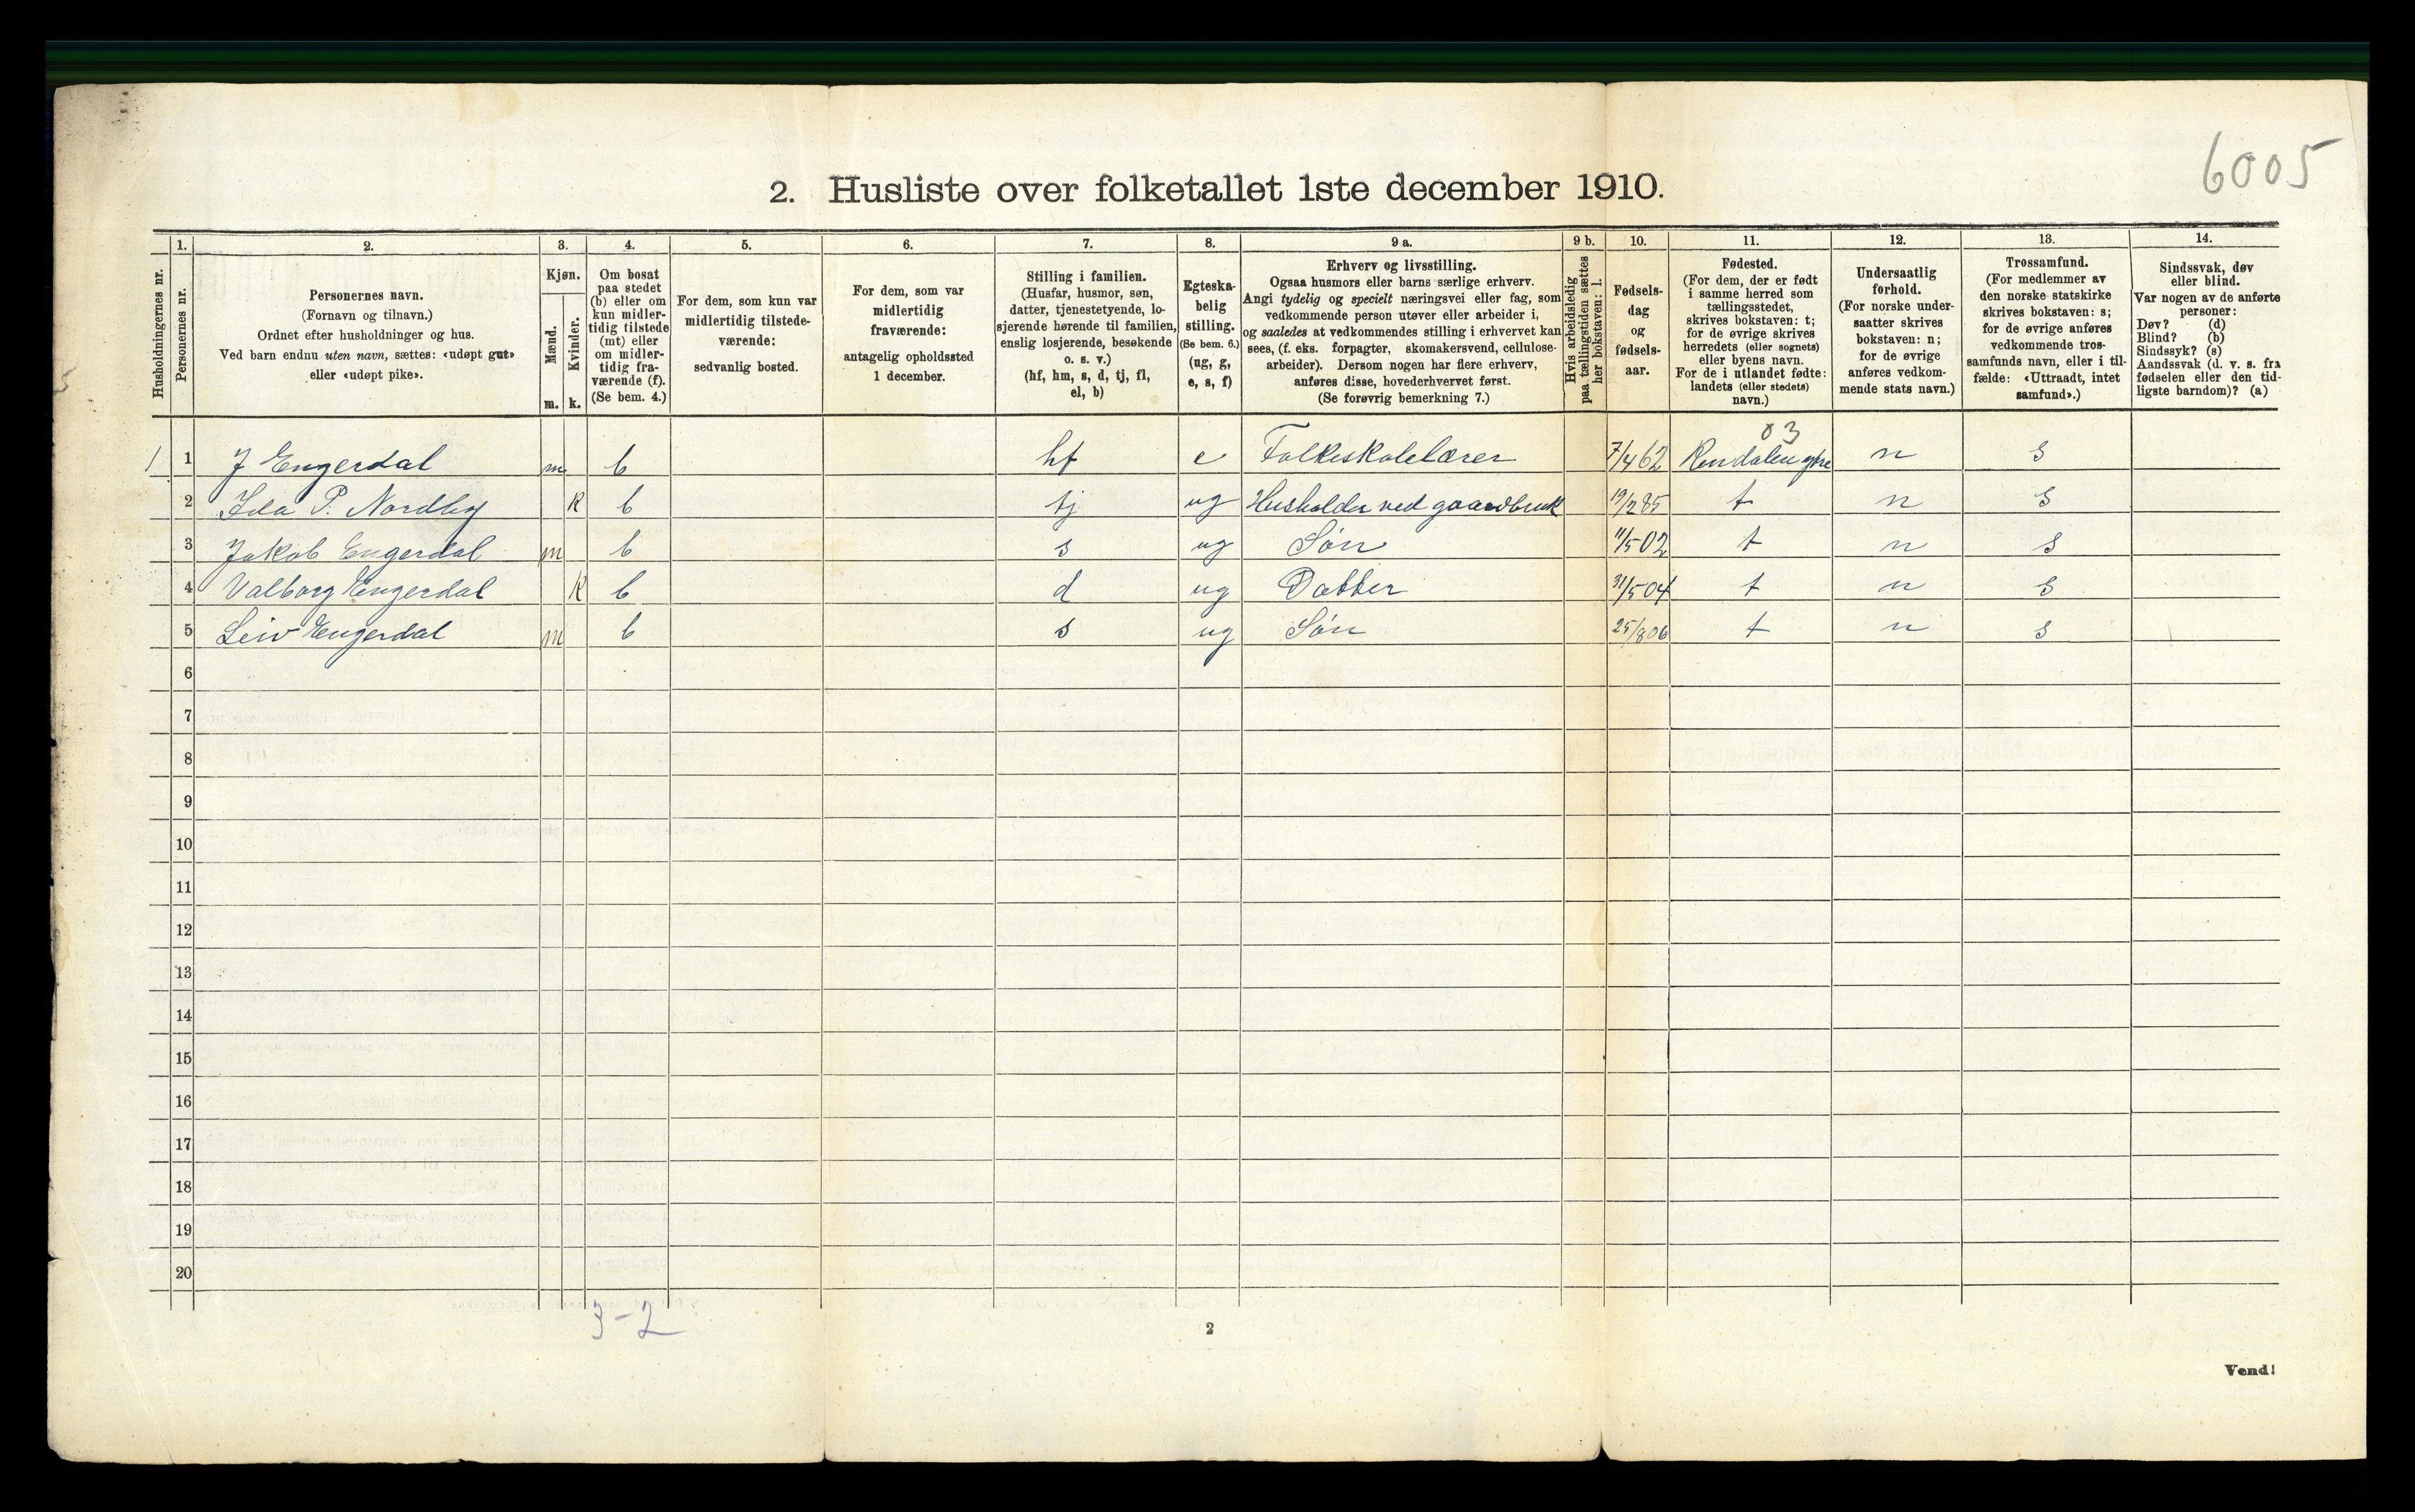 6005
2. Husliste over folketallet 1ste december 1910.
Husholdningernes nr.
1.
Personernes nr.
2.
Personernes navn.
(Fornavn og tilnavn.)
Ordnet efter husholdninger og hus.
Ved barn endnu uten navn, sættes: «udøpt gut»
eller «udøpt pike».
3.
Kjøn.
Mænd.
Kvinder.
m. k.
4.
Om bosat
paa stedet
(b) eller om
kun midler-
tidig tilstede
(mt) eller
om midler-
tidig fra-
værende (f).
(Se bem. 4.)
5.
For dem, som kun var
midlertidig tilstede-
værende:
sedvanlig bosted.
6.
For dem, som var
midlertidig
fraværende:
antagelig opholdssted
1 december.
7.
Stilling i familien.
(Husfar, husmor, søn,
datter, tjenestetyende, lo-
sjerende hørende til familien,
enslig losjerende, besøkende
o. s. v.)
(hf, hm, s, d, tj, fl,
el, b)
8.
Egteska-
belig
stilling.
(Se bem. 6.)
(ug, g,
e, s, f)
9 a.
Erhverv og livsstilling.
Ogsaa husmors eller barns særlige erhverv.
Angi tydelig og specielt næringsvei eller fag, som
vedkommende person utøver eller arbeider i,
og saaledes at vedkommendes stilling i erhvervet kan
sees, (f. eks. forpagter, skomakersvend, cellulose-
arbeider). Dersom nogen har flere erhverv,
anføres disse, hovederhvervet først.
(Se forøvrig bemerkning 7.)
9 b.
Hvis arbeidsledig
paa tællingstiden sættes
her bokstaven: l.
10.
Fødsels-
dag
og
fødsels-
aar.
11.
Fødested.
(For dem, der er født
i samme herred som
tællingsstedet,
skrives bokstaven: t;
for de øvrige skrives
herredets (eller sognets)
eller byens navn.
For de i utlandet fødte:
landets (eller stedets)
navn.)
12.
Undersaatlig
forhold.
(For norske under-
saatter skrives
bokstaven: n;
for de øvrige
anføres vedkom-
mende stats navn.)
13.
Trossamfund.
(For medlemmer av
den norske statskirke
skrives bokstaven: s;
for de øvrige anføres
vedkommende tros-
samfunds navn, eller i til-
fælde: «Uttraadt, intet
samfund».)
14.
Sindssvak, døv
eller blind.
Var nogen av de anførte
personer:
Døv? (d)
Blind? (b)
Sindssyk? (s)
Aandssvak (d. v. s. fra
fødselen eller den tid-
ligste barndom)? (a)
03
1 1 J Engerdal m b hf e Folkeskolelærer 7/4 62 Rendalen øvre n s
2 Ida P. Nordby k b tj ug Husholder ved gaardbruk 19/2 85 t n s
3 Jakob Engerdal m b s ug Søn 11/5 02 t n s
4 Valborg Engerdal k b d ug Datter 31/5 04 t n s
5 Leiv Engerdal m b s ug Søn 25/8 06 t n s
6
7
8
9
10
11
12
13
14
15
16
17
18
19
20
3-2
2
Vend!